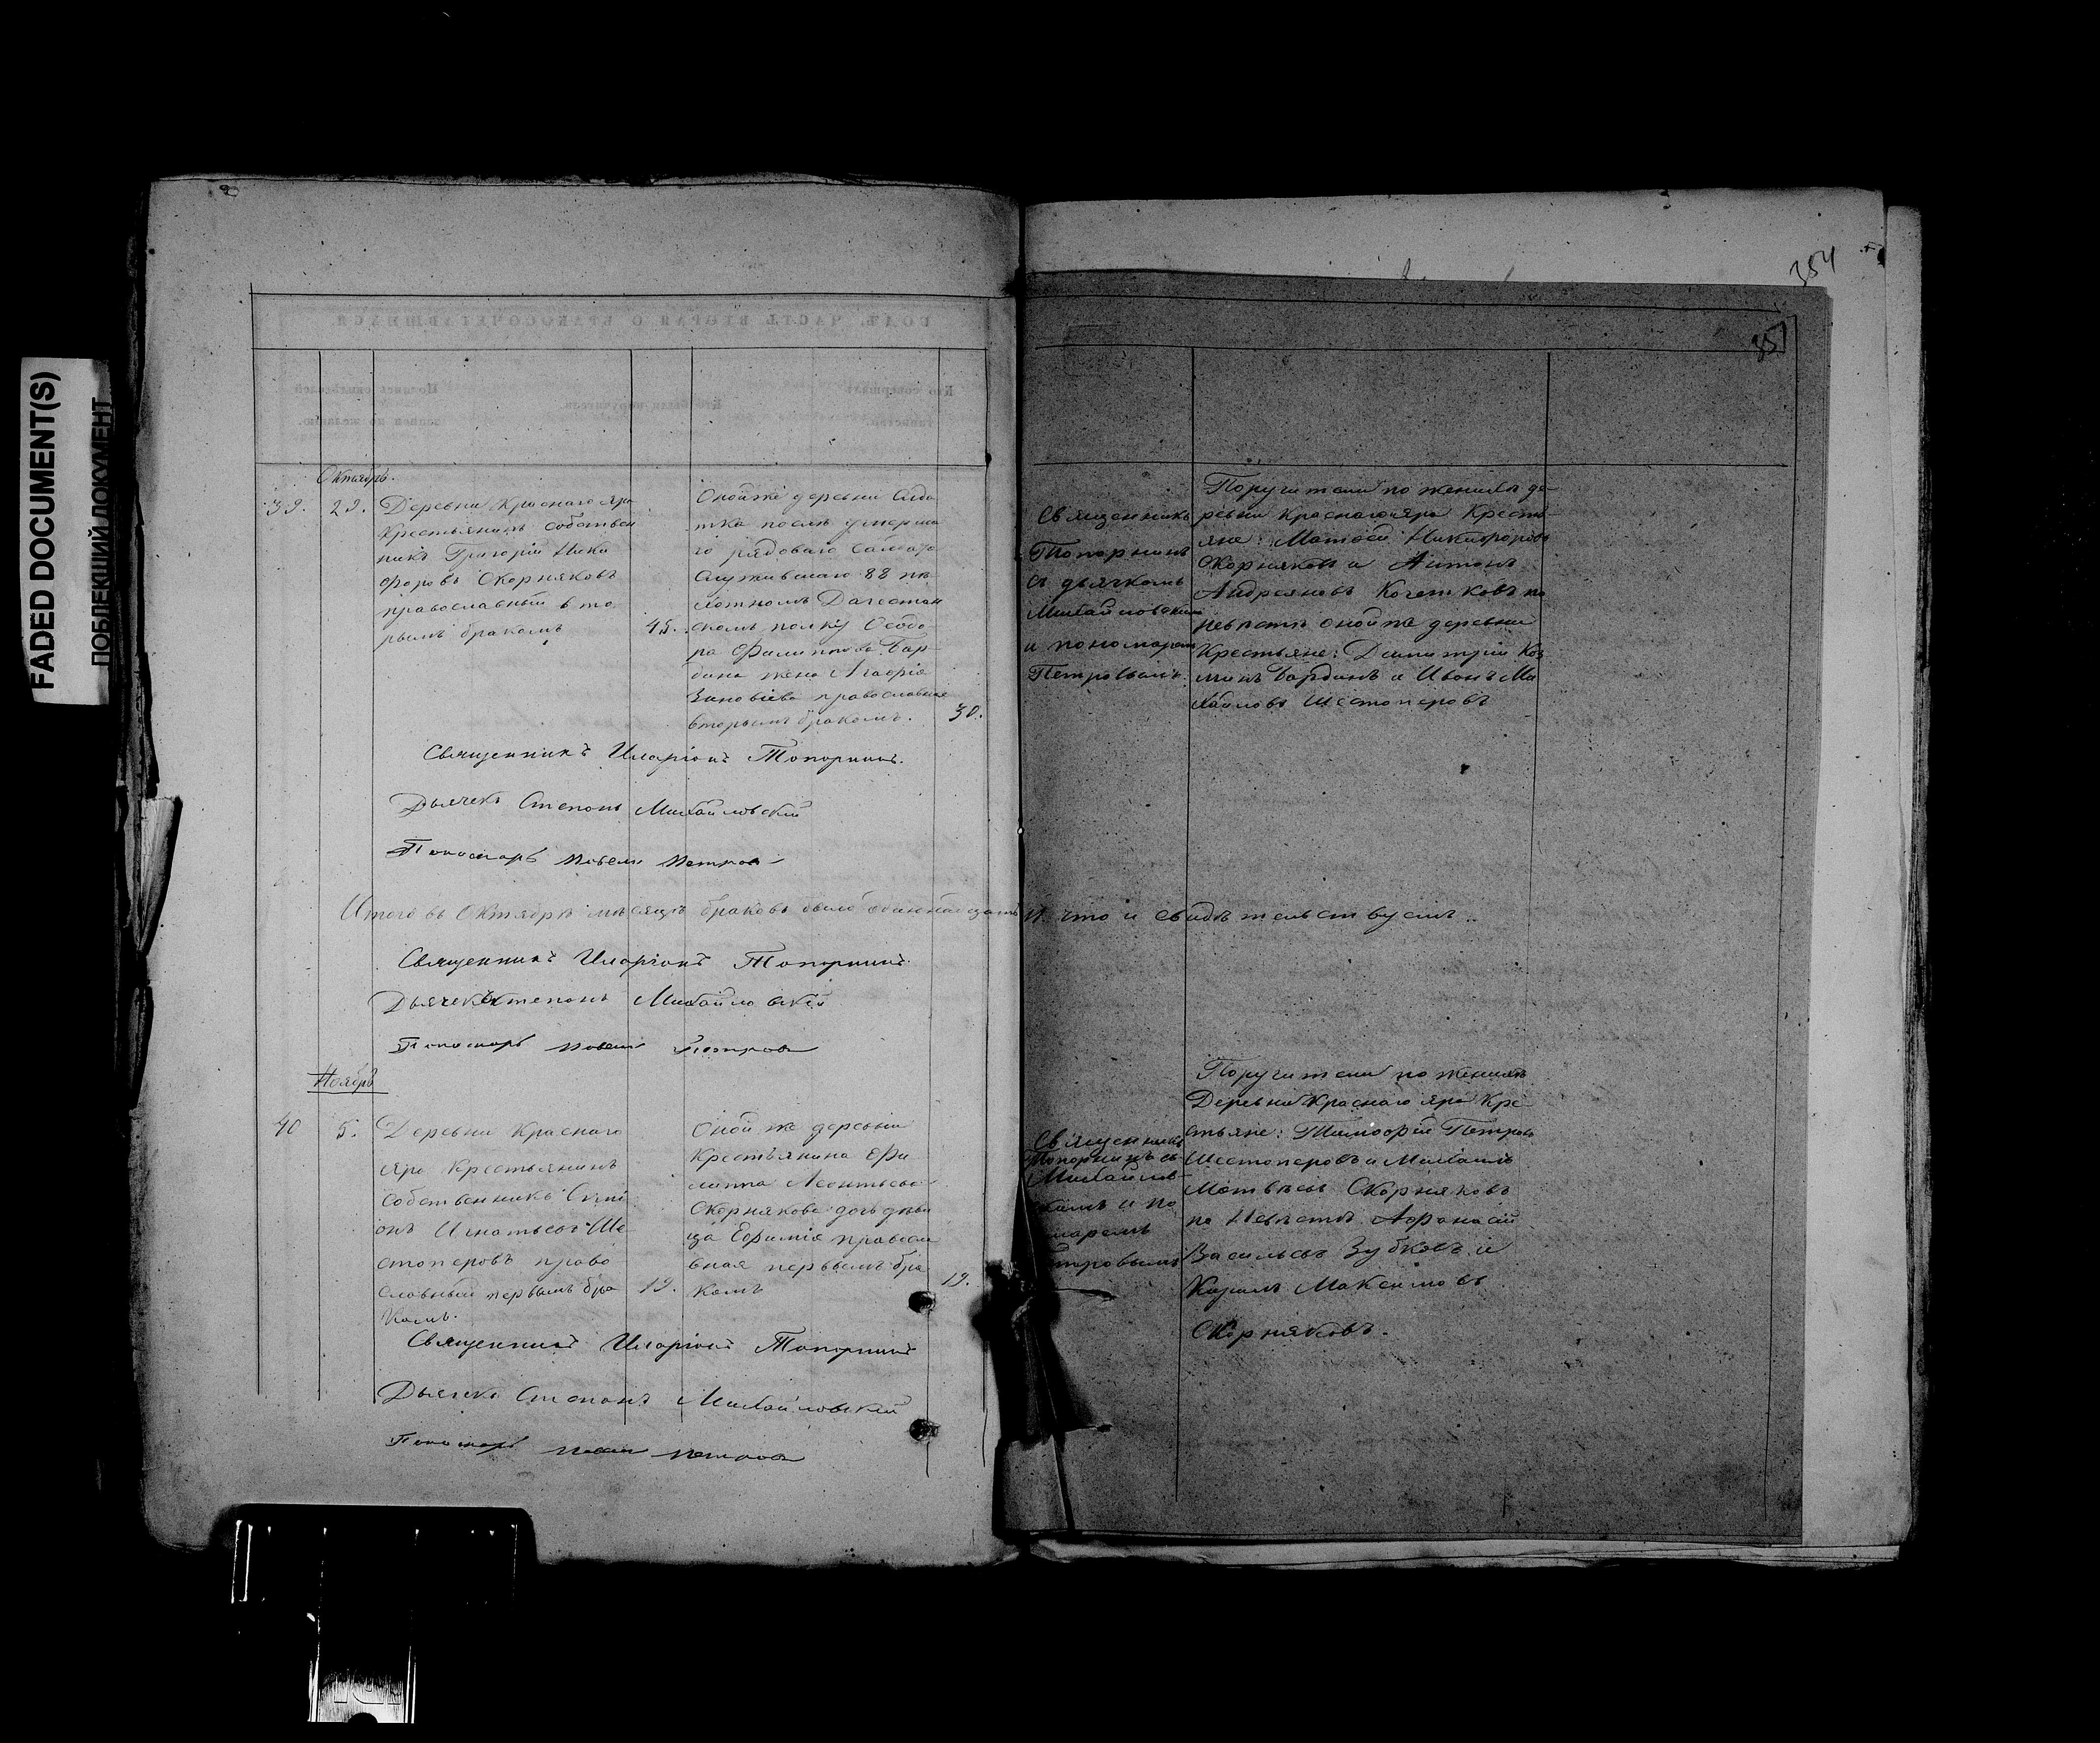 FADED DOCUMENT(S)
ПОБЛЕКШИЙ ДОКУМЕНТ
354
351
Октябрь.
39. 29.
Деревни Краснаго яра
крестьянинъ собствен
никъ Григорій Ники
форовъ Скорняковъ
православный вто
рымъ бракомъ
45.
Оной же деревни Солда
тка послѣ умерша
го рядоваго
служившаго 88 пѣ
хотномъ Дагестан
скомъ полку Ѳеодо
ра Филиппова Бар
дина жена Агафія
Зиновіева православная
вторымъ бракомъ.
30.
Священникъ
Топорнинъ
съ дьячкомъ
Михайловскимъ
и пономаремъ
Петровымъ.
Поручители по женихѣ де
ревни Краснаго яра Кресть
яне: Матвѣй Никифоровъ
Скорняковъ и Антонъ
Андреяновъ Кочетковъ по
невѣстѣ оной же деревни
Крестьяне: Димитрій Коз
минъ Бардинъ и Иванъ Ми
хайловъ Шестоперовъ
Священникъ Иларіонъ Топорнинъ.
Дьячекъ Степанъ Михайловскій
Пономарь Павелъ Петровъ
Итого въ Октябрѣ мѣсяцѣ браковъ было одиннадцать 11. что и свидѣтельствуемъ.
Священникъ Иларіонъ Топорнинъ.
Дьячекъ Степанъ Михайловскій
Пономарь Павелъ Петровъ
Ноябрь
40 5.
Деревни Краснаго
яра Крестьянинъ
собственникъ Симі
онъ Игнатьевъ Ше
стоперовъ право
славный первымъ бра
комъ.
19.
Оной же деревни
Крестьянина Фи
липпа Леонтьева
Скорнякова дочь дѣви
ца Евфимія правосл
вная первымъ бра
комъ
19.
Священникъ
Топорнинъ съ
Михайлов
скимъ и по
маремъ
етровымъ
Поручители по женихѣ
Деревни Краснаго яра Кре
стьяне: Тимофей Петровъ
Шестоперовъ и Михаилъ
Матвѣевъ Скорняковъ
по Невѣстѣ Афанасій
Васильевъ Зубковъ и
Кирилъ Максимовъ
Скорняковъ.
Священникъ Иларіонъ Топорнинъ
Дьячекъ Степанъ Михайловскій
Пономарь Павелъ Петровъ